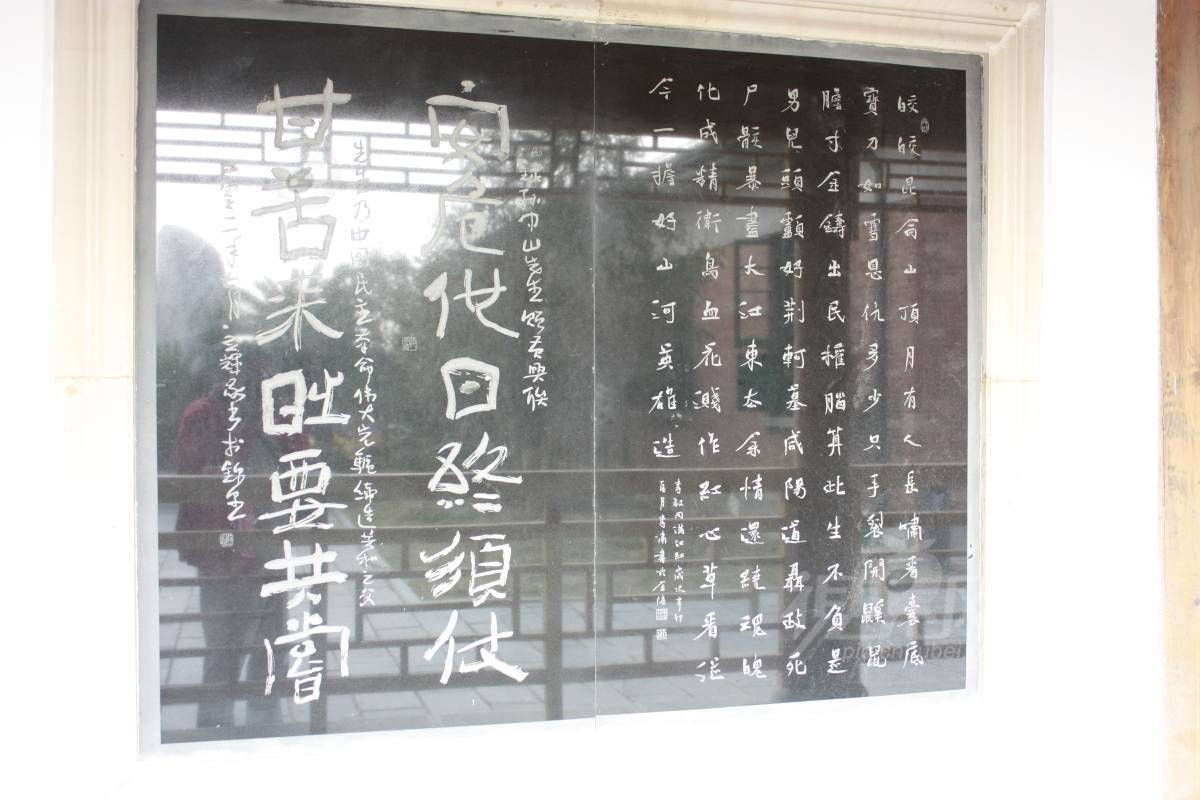 皎皎昆侖山頂月有人長嘯看囊底
寶刀如雪恩仇多少只手裂開鼷鼠
膽寸金鑄出民權腦算此生不負是
男兒頭顱好荆軻墓咸陽道聶政死
尸骸暴盡大江東去余情還繞魂魄
化成精衛鳥血花濺作紅心草看從
今一擔好山河英雄造
孫中山先生
安危他日終須仗
先生乃中国民主革命伟大先驱缔造共和之父
甘苦來時要共嘗